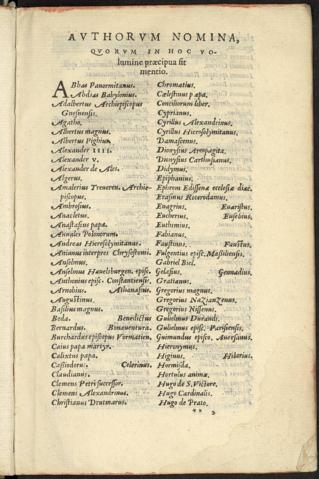 AVTHORVM NOMINA,
QVORVM IN HOC VO-
lumine præcipua fit
mentio.
ABbas Panormitanus.
Abdias Babylonius.
Adalbertus Archiepiscopus
Gnesnensis.
Agatho.
Albertus magnus.
Albertus Pighius.
Alexander IIII.
Alexander V.
Alexander de Ales.
Algerus.
Amalerius Treueren. Archie-
piscopus.
Ambrosius.
Anacletus.
Anastasius papa.
Annales Polonorum.
Andreas Hierosolymitanus.
Anianus interpres Chrysostomi.
Anselmus.
Anselmus Hauelburgen. episc.
Anthonius episc. Constantiensis.
Arnobius. Athanasius.
Augustinus.
Basilius magnus.
Beda. Benedictus
Bernardus. Bonauentura.
Burchardus episcopus Vormatien.
Caius papa martyr.
Calixtus papa.
Cassiodorus. Celerinus.
Claudianus.
Clemens Petri successor.
Clemens Alexandrinus.
Christianus Drutmarus.
Chromatius.
Cælestinus papa.
Conciliorum liber.
Cyprianus.
Cyrillus Alexandrinus.
Cyrillus Hierosolymitanus.
Damascenus.
Dionysius Areopagita.
Dionysius Carthusianus.
Didymus.
Epiphanius.
Ephrem Edissenæ ecclesiæ diac.
Erasmus Roterodamus.
Euagrius. Euaristus.
Eucherius. Eusebius.
Euthimius.
Fabianus.
Faustinus. Faustus.
Fulgentius episc. Massiliensis.
Gabriel Biel.
Gelasius. Gennadius.
Gratianus.
Gregorius magnus.
Gregorius Nazianzenus.
Gregorius Nissenus.
Gulielmus Durandi.
Gulielmus episc. Parisiensis.
Guimundus episco. Auersanus.
Hieronymus.
Higinus. Hilarius.
Hormisda.
Hortulus animæ.
Hugo de S. Victore.
Hugo Cardinalis.
Hugo de Prato.